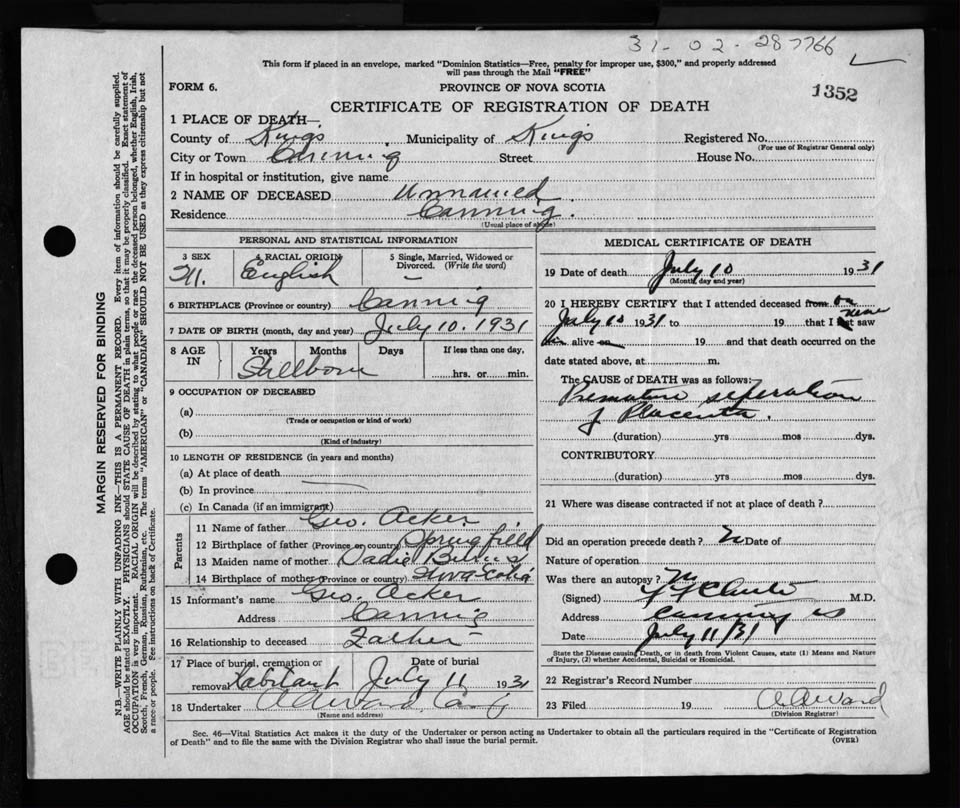 31-02-287766
This form if placed in an envelope, marked "Dominion Statistics—Free, penalty for improper use, $300," and properly addressed
will pass through the Mail "FREE"
FORM 6.
PROVINCE OF NOVA SCOTIA
1352
CERTIFICATE OF REGISTRATION OF DEATH
1 PLACE OF DEATH—
County of Kings, Municipality of Kings Registered No.
(For use of Registrar General only)
City or Town Canning Street House No.
If in hospital or institution, give name
2 NAME OF DECEASED Unnamed
Residence Canning.
(Usual place of abode)
MARGIN RESERVED FOR BINDING
N.B.—WRITE PLAINLY WITH UNFADING INK—THIS IS A PERMANENT RECORD. Every item of information should be carefully supplied.
AGE should be stated EXACTLY. PHYSICIANS should STATE CAUSE OF DEATH in plain terms, so that it may be properly classified. Exact statement of
OCCUPATION is very important. RACIAL ORIGIN will be described by stating to what people or race the deceased person belonged, whether English, Irish,
Scotch, French, German, Russian, Ruthenian, etc. The terms "AMERICAN" or "CANADIAN" SHOULD NOT BE USED as they express citizenship but not
a race or people. See instructions on back of Certificate.
PERSONAL AND STATISTICAL INFORMATION
3 SEX 4 RACIAL ORIGIN 5 Single, Married, Widowed or
Divorced. (Write the word)
M. English
6 BIRTHPLACE (Province or country) Canning
7 DATE OF BIRTH (month, day and year) July 10. 1931
8 AGE IN Years Months Days If less than one day,
Stillborn hrs. or min.
9 OCCUPATION OF DECEASED
(a)
(Trade or occupation or kind of work)
(b)
(Kind of industry)
10 LENGTH OF RESIDENCE (in years and months)
(a) At place of death
(b) In province
(c) In Canada (if an immigrant)
Parents
11 Name of father Geo. Acker
12 Birthplace of father (Province or country) Springfield
13 Maiden name of mother Sadie
14 Birthplace of mother (Province or country) Nova Scotia
15 Informant's name Geo. Acker
Address Canning
16 Relationship to deceased Father
17 Place of burial, cremation or Date of burial
removal Habitant July 11 1931
18 Undertaker A A Ward, Can'g
(Name and address)
MEDICAL CERTIFICATE OF DEATH
19 Date of death July 10 1931
(Month, day and year)
20 I HEREBY CERTIFY that I attended deceased from on
July 10 1931 to 19 that I last never saw
him alive on 19 and that death occurred on the
date stated above, at m.
The CAUSE of DEATH was as follows:
Premature seperation
of Placenta.
(duration) yrs mos dys.
CONTRIBUTORY
(duration) yrs mos dys.
21 Where was disease contracted if not at place of death?
Did an operation precede death? No Date of
Nature of operation
Was there an autopsy? No
(Signed) M.D.
Address Canning NS
Date July 11/31
State the Disease causing Death, or in death from Violent Causes, state (1) Means and Nature
of Injury, (2) whether Accidental, Suicidal or Homicidal.
22 Registrar's Record Number
23 Filed 19 A A Ward
(Division Registrar)
Sec. 46—Vital Statistics Act makes it the duty of the Undertaker or person acting as Undertaker to obtain all the particulars required in the "Certificate of Registration
of Death" and to file the same with the Division Registrar who shall issue the burial permit.
(OVER)